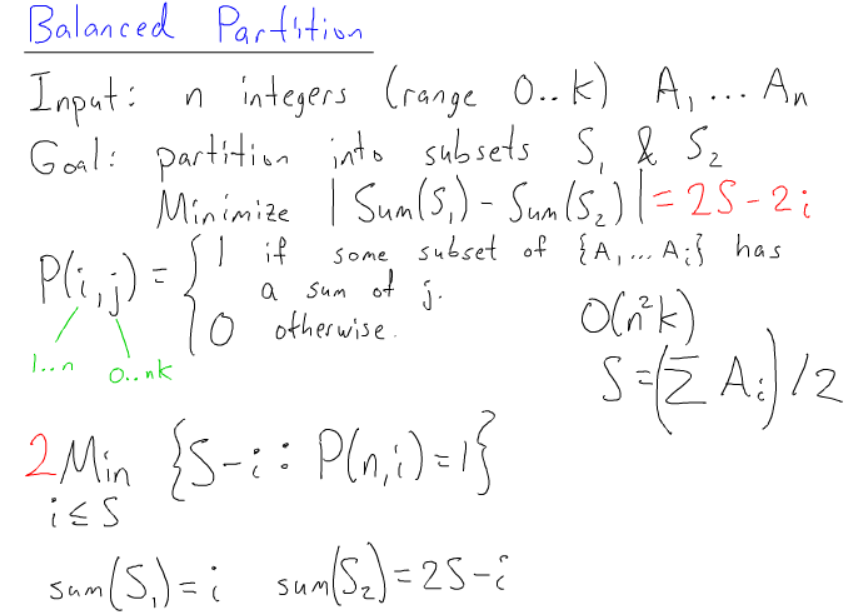 Balanced Partition
Input: n integers (range 0..k) A₁ ... Aₙ
Goal: partition into subsets S₁ & S₂
Minimize |Sum(S₁) - Sum(S₂)| = 2S - 2i
P(i,j) = { 1 if some subset of {A₁, ... Aᵢ} has
a sum of j.
0 otherwise.
1..n
0..nk
O(n²k)
S = (Σ Aᵢ) / 2
2 Min {S-i : P(n,i) = 1}
i ≤ S
sum(S₁) = i sum(S₂) = 2S - i